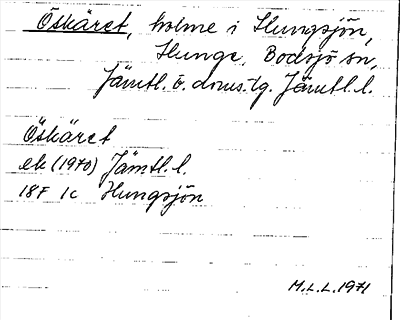 Öskäret, holme i Hungsjön,
Hunge, Bodsjö sn,
Jämtl. ö. doms.tg. Jämtl. l.
Öskäret
ek (1970) Jämtl. l.
18F 1c Hungsjön
M.L.L. 1971